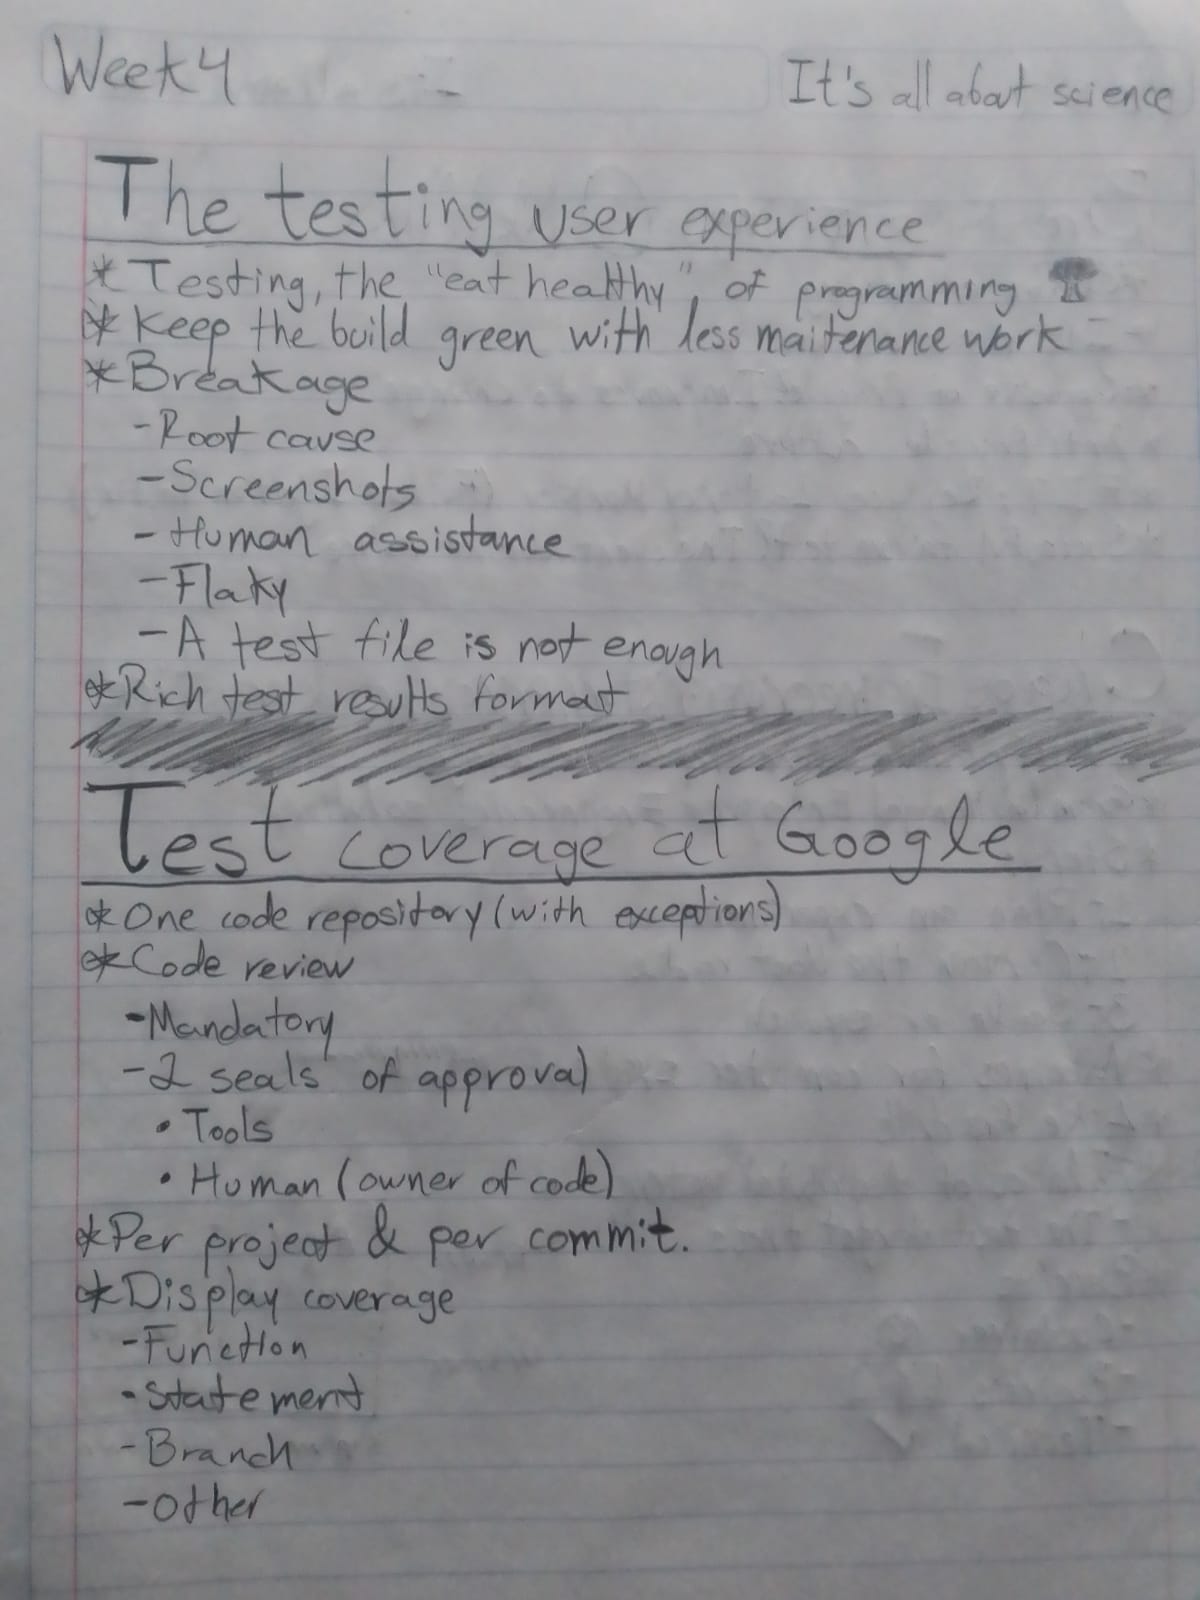 Week 4
It's all about science
The testing user experience
* Testing, the "eat healthy", of programming
* Keep the build green with less maitenance work
* Breakage
- Root cause
- Screenshots
- Human assistance
- Flaky
- A test file is not enough
* Rich test results format
Test coverage at Google
* One code repository (with exceptions)
* Code review
- Mandatory
- 2 seals of approval
• Tools
• Human (owner of code)
* Per project & per commit.
* Display coverage
- Function
- Statement
- Branch
- Other